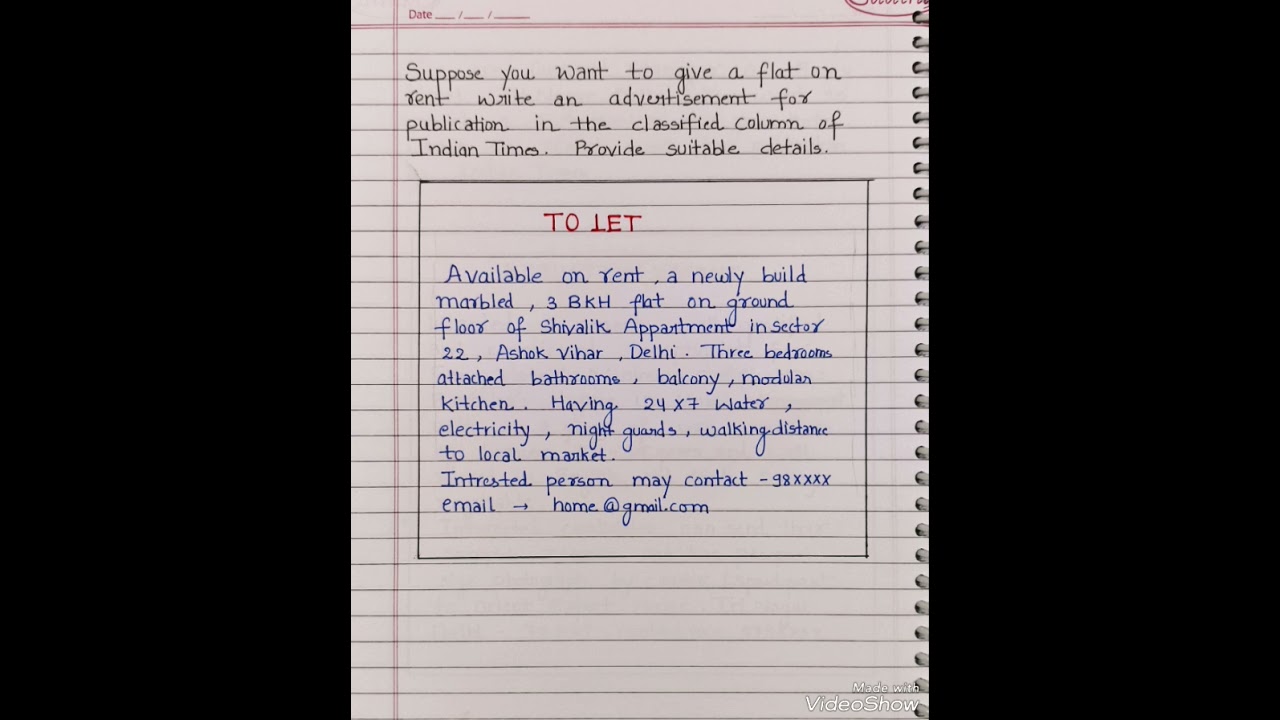 Date __/__/____
Suppose you want to give a flat on
rent write an advertisement for
publication in the classified column of
Indian Times. Provide suitable details.
TO LET
Available on rent, a newly build
marbled, 3 BKH flat on ground
floor of Shivalik Appartment in sector
22, Ashok Vihar, Delhi. Three bedrooms
attached bathrooms, balcony, modular
kitchen. Having 24x7 Water,
electricity, night guards, walking distance
to local market.
Intrested person may contact - 98xxxx
email → home@gmail.com
Made with
VideoShow